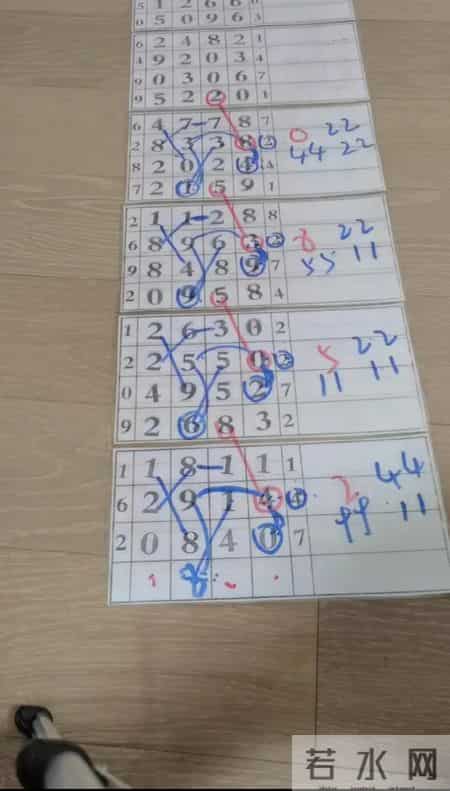 5 1 2 6 6
0 5 0 9 6 3
6 2 4 8 2 1
4 9 2 0 3 4
9 0 3 0 6 7
9 5 2 2 0 1
6 4 7 7 8 7
0 22
2 8 3 3 8 2
44 22
8 2 0 2 4 4
7 2 1 5 9 1
2 1 1 2 8 8
8 22
6 8 9 6 3 2
55 11
9 8 4 8 9 7
2 0 9 5 8 4
1 2 6 3 0 2
5 22
2 2 5 5 0 2
11 11
0 4 9 5 2 7
9 2 6 8 3 2
1 1 8 1 1 1
2 44
6 2 9 1 4 4
99 11
2 0 8 4 0 7
8
若水网